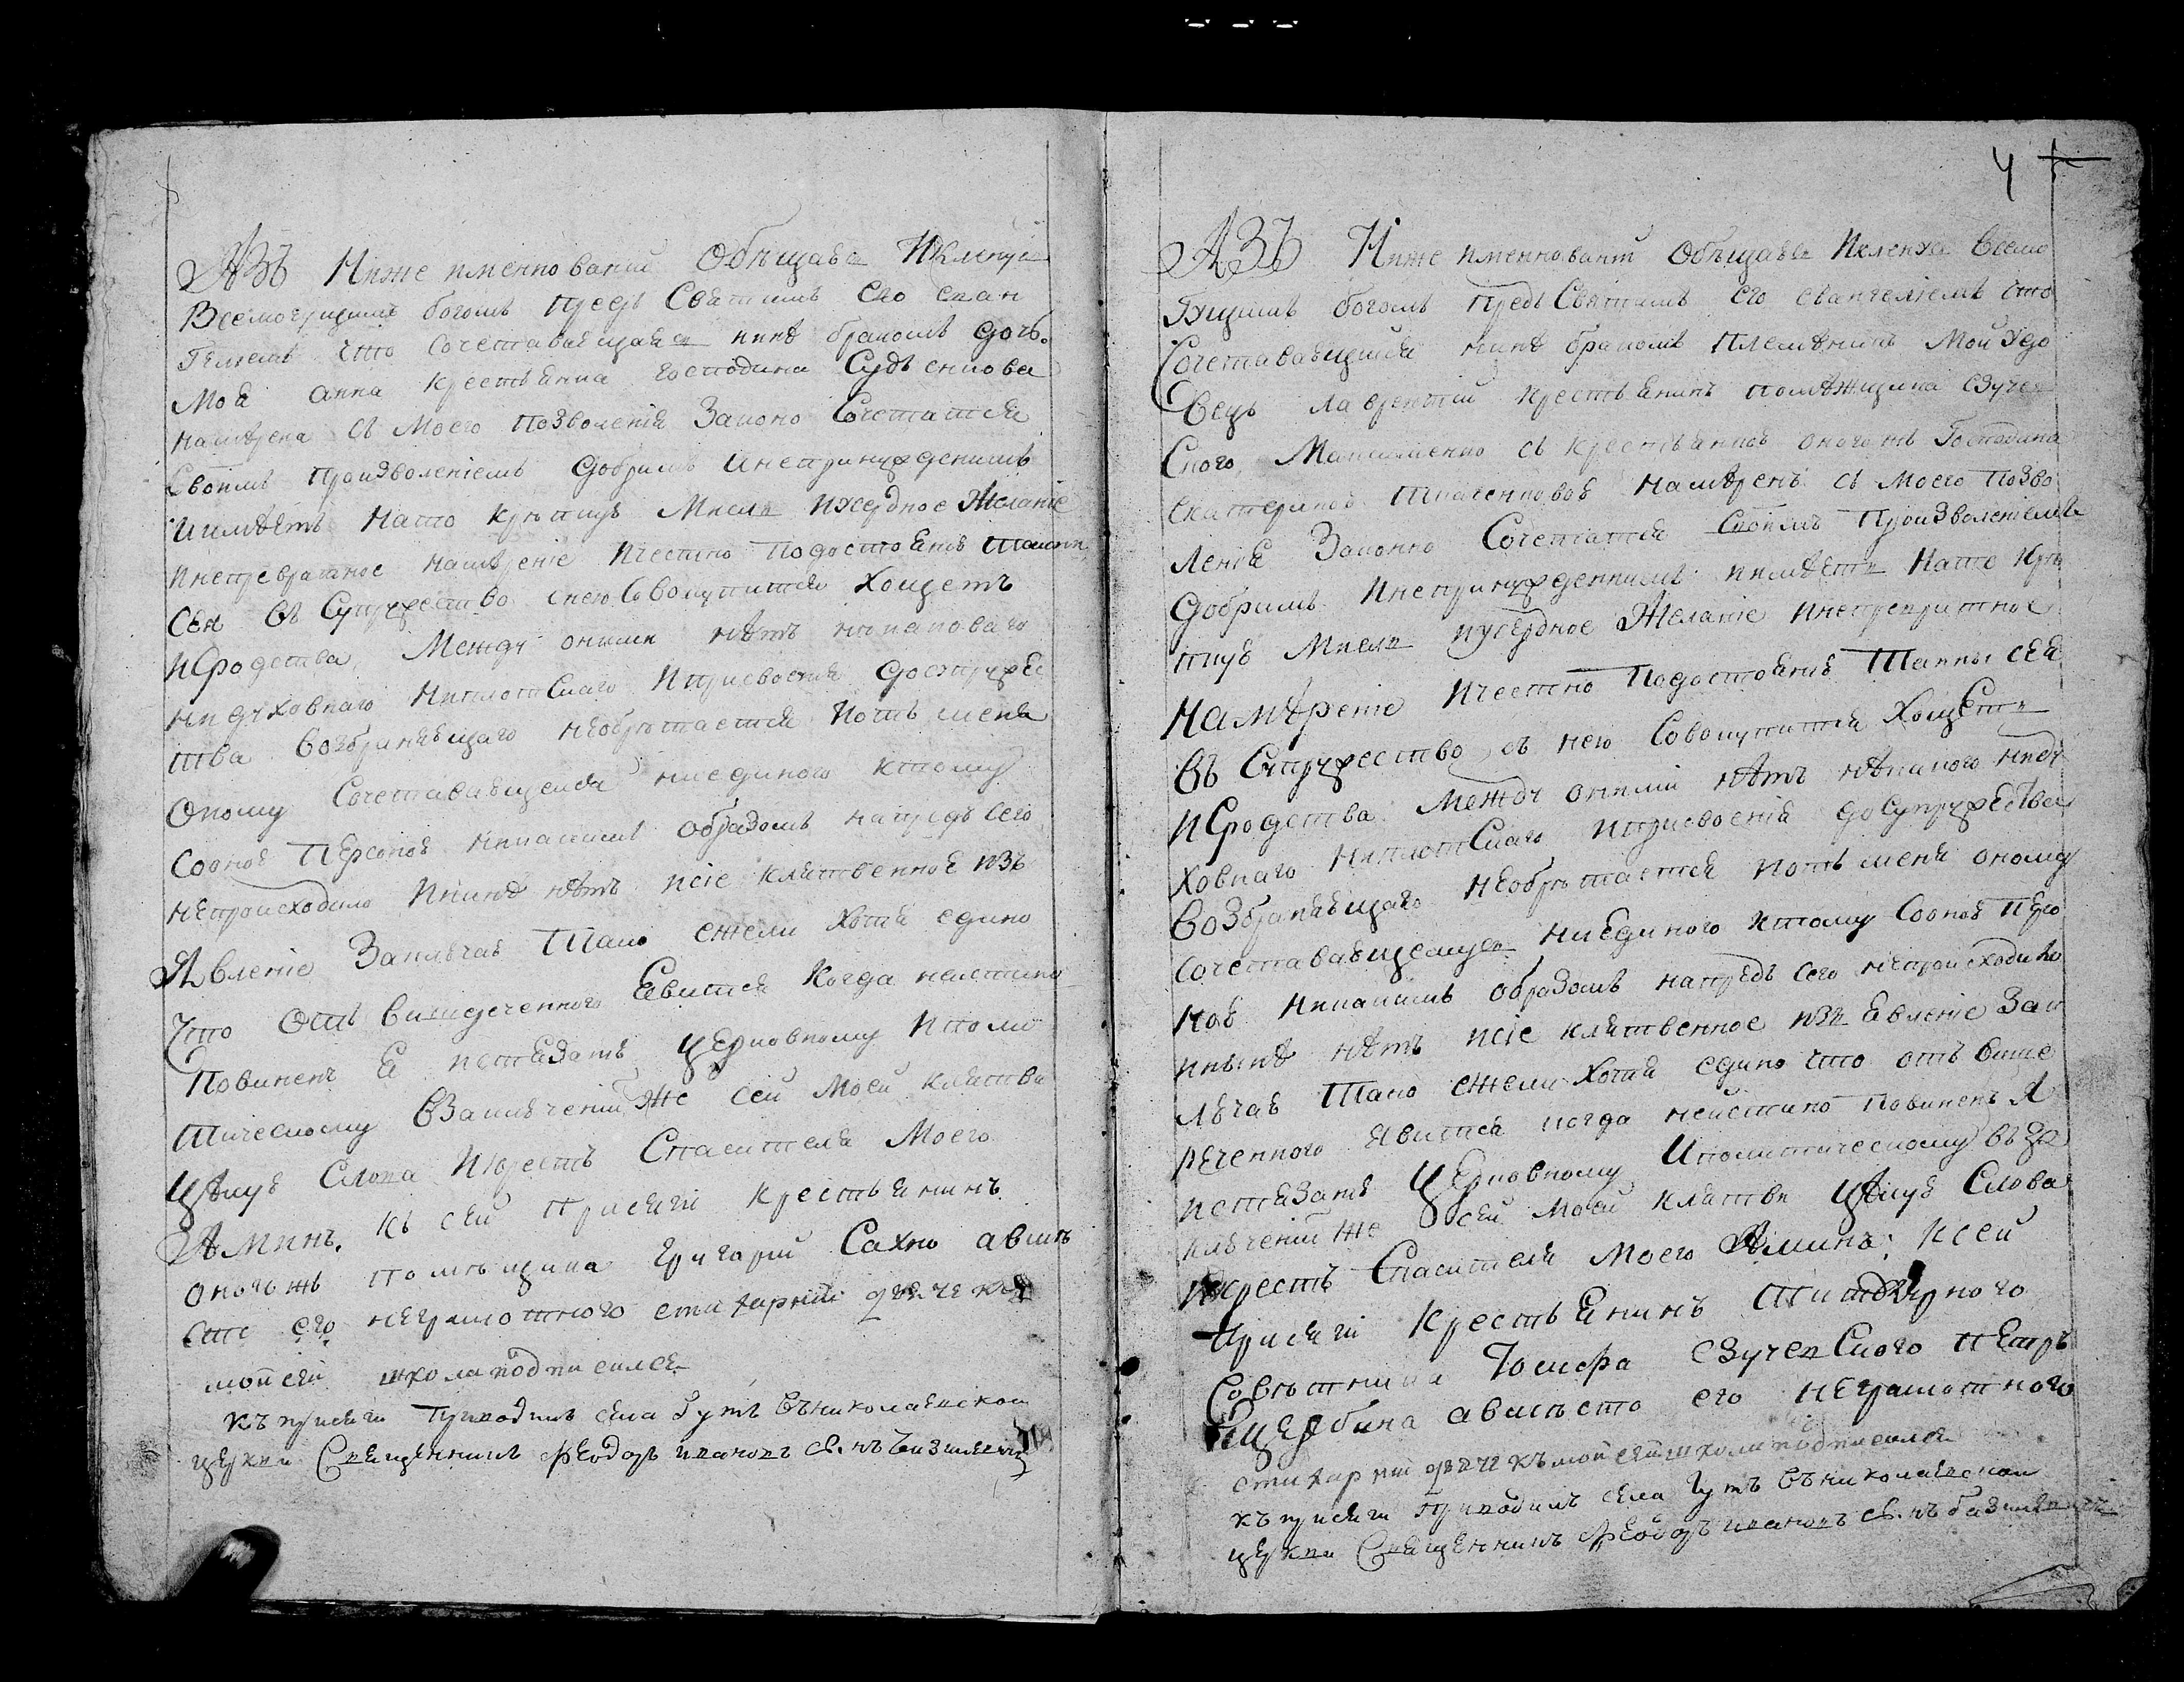 Азъ Ниже именнованій Обѣщаюся Иклинуся
Всемогущимъ богомъ предъ Святимъ Его Еван
Гелиемъ что Сочетаваящаяся нинѣ бракомъ дочь
Моя анна крестьянка господина Судьенкова
намѣрена съ Моего Позволенія Законо Сочетатся
Своимъ Произволеніемъ добримъ Инепринужденнимъ
Иимѣетъ Нато крѣпкую Мисль иусердное Желаніе
инепревратное намѣреніе ичестно Подостоянію Таини
Сея въ Супружество снею Совокупится Хощетъ
иСродства Между оними нѣтъ никаковаго
нидуховнаго Ниплотскаго Иприсвоенія досупруже
ства Возбраняющаго Необрѣтается Поть меня
Оному Сочетаваящемся ниединого ктому
Сооною Персоною никакимъ образомъ напредъ Сего
непроисходило Ининѣ нѣтъ исіе клятвенное изъ
Явленіе Заключаю Тако ежели Хотя едино
Что Отъ вишереченного Явится Когда неистино
Повиненъ Я истязатъ Церковному Иполи
тическому ВЗаключеній Же сей Моей клятви
Цѣлую Слова Икрестъ Спасителя Моего
Аминъ. къ сей присягй крестьянинъ
оногожъ помѣщика Григорій Сахно авмѣ
сто его неграмотного стихарній дячекъ
мойсей шкома подписался
къ присяги Приводилъ села Гутъ Свниколаевской
церкви Священникъ Феодоръ ивановъ С.нъ базилевичъ
4
АЗЪ Ниже именнованній Обѣщаюся Иклинуся Всемо
Гущимъ богомъ Предъ Святимъ Его Евангеліемъ что
Сочетаваящийся нинѣ бракомъ Племѣникъ Мой Удо
вецъ лаврентій крестьянинъ помѣщика
Ского Максименко съ крестьянкою оногожъ Господина
екатериною Ткаченковою Намѣренъ съ Моего Позво
ленія Законно Сочетатся Своимъ Произволеніемъ
добримъ Инепринужденнимъ иимѣетъ Нато Крѣ
пкую Мисль иусердное Желаніе Инепревратное
Намѣреніе Ичестно Подостоянію Таини сея
въ Супружество съ нею Совокупится Хощетъ
иСродства Между оними нѣтъ нѣкакого ниду
ховнаго Ниплотскаго иприсвоенія досупружества
Возбраняющаго Необрѣтается Поть меня оному
Сочетаваящемуся Ниединого ктому Сооною Персо
ною Никакимъ образомъ напредъ Сего Непроисходило
инынѣ нѣтъ исіе клятвенное изъ Явленіе Зак
лючаю Тако ежели Хотя едино что отъ више
реченного явится когда неистино Повиненъ Я
истязатъ Церковному Иполитическому въза
ключеній же сей Моей клятви цѣлую Слова
икрестъ Спасителя Моего Аминъ: ксей
присягй Крестьянинъ Титолярного
Совѣтника Іосифа Петръ
Щербина авмѣсто его Неграмотного
стихарній дячекъ мойсей шкома подписался
къ присяги Приводилъ села Гутъ Свниколаевской
церкви Священникъ Феодоръ ивановъ С.нъ базилевичъ